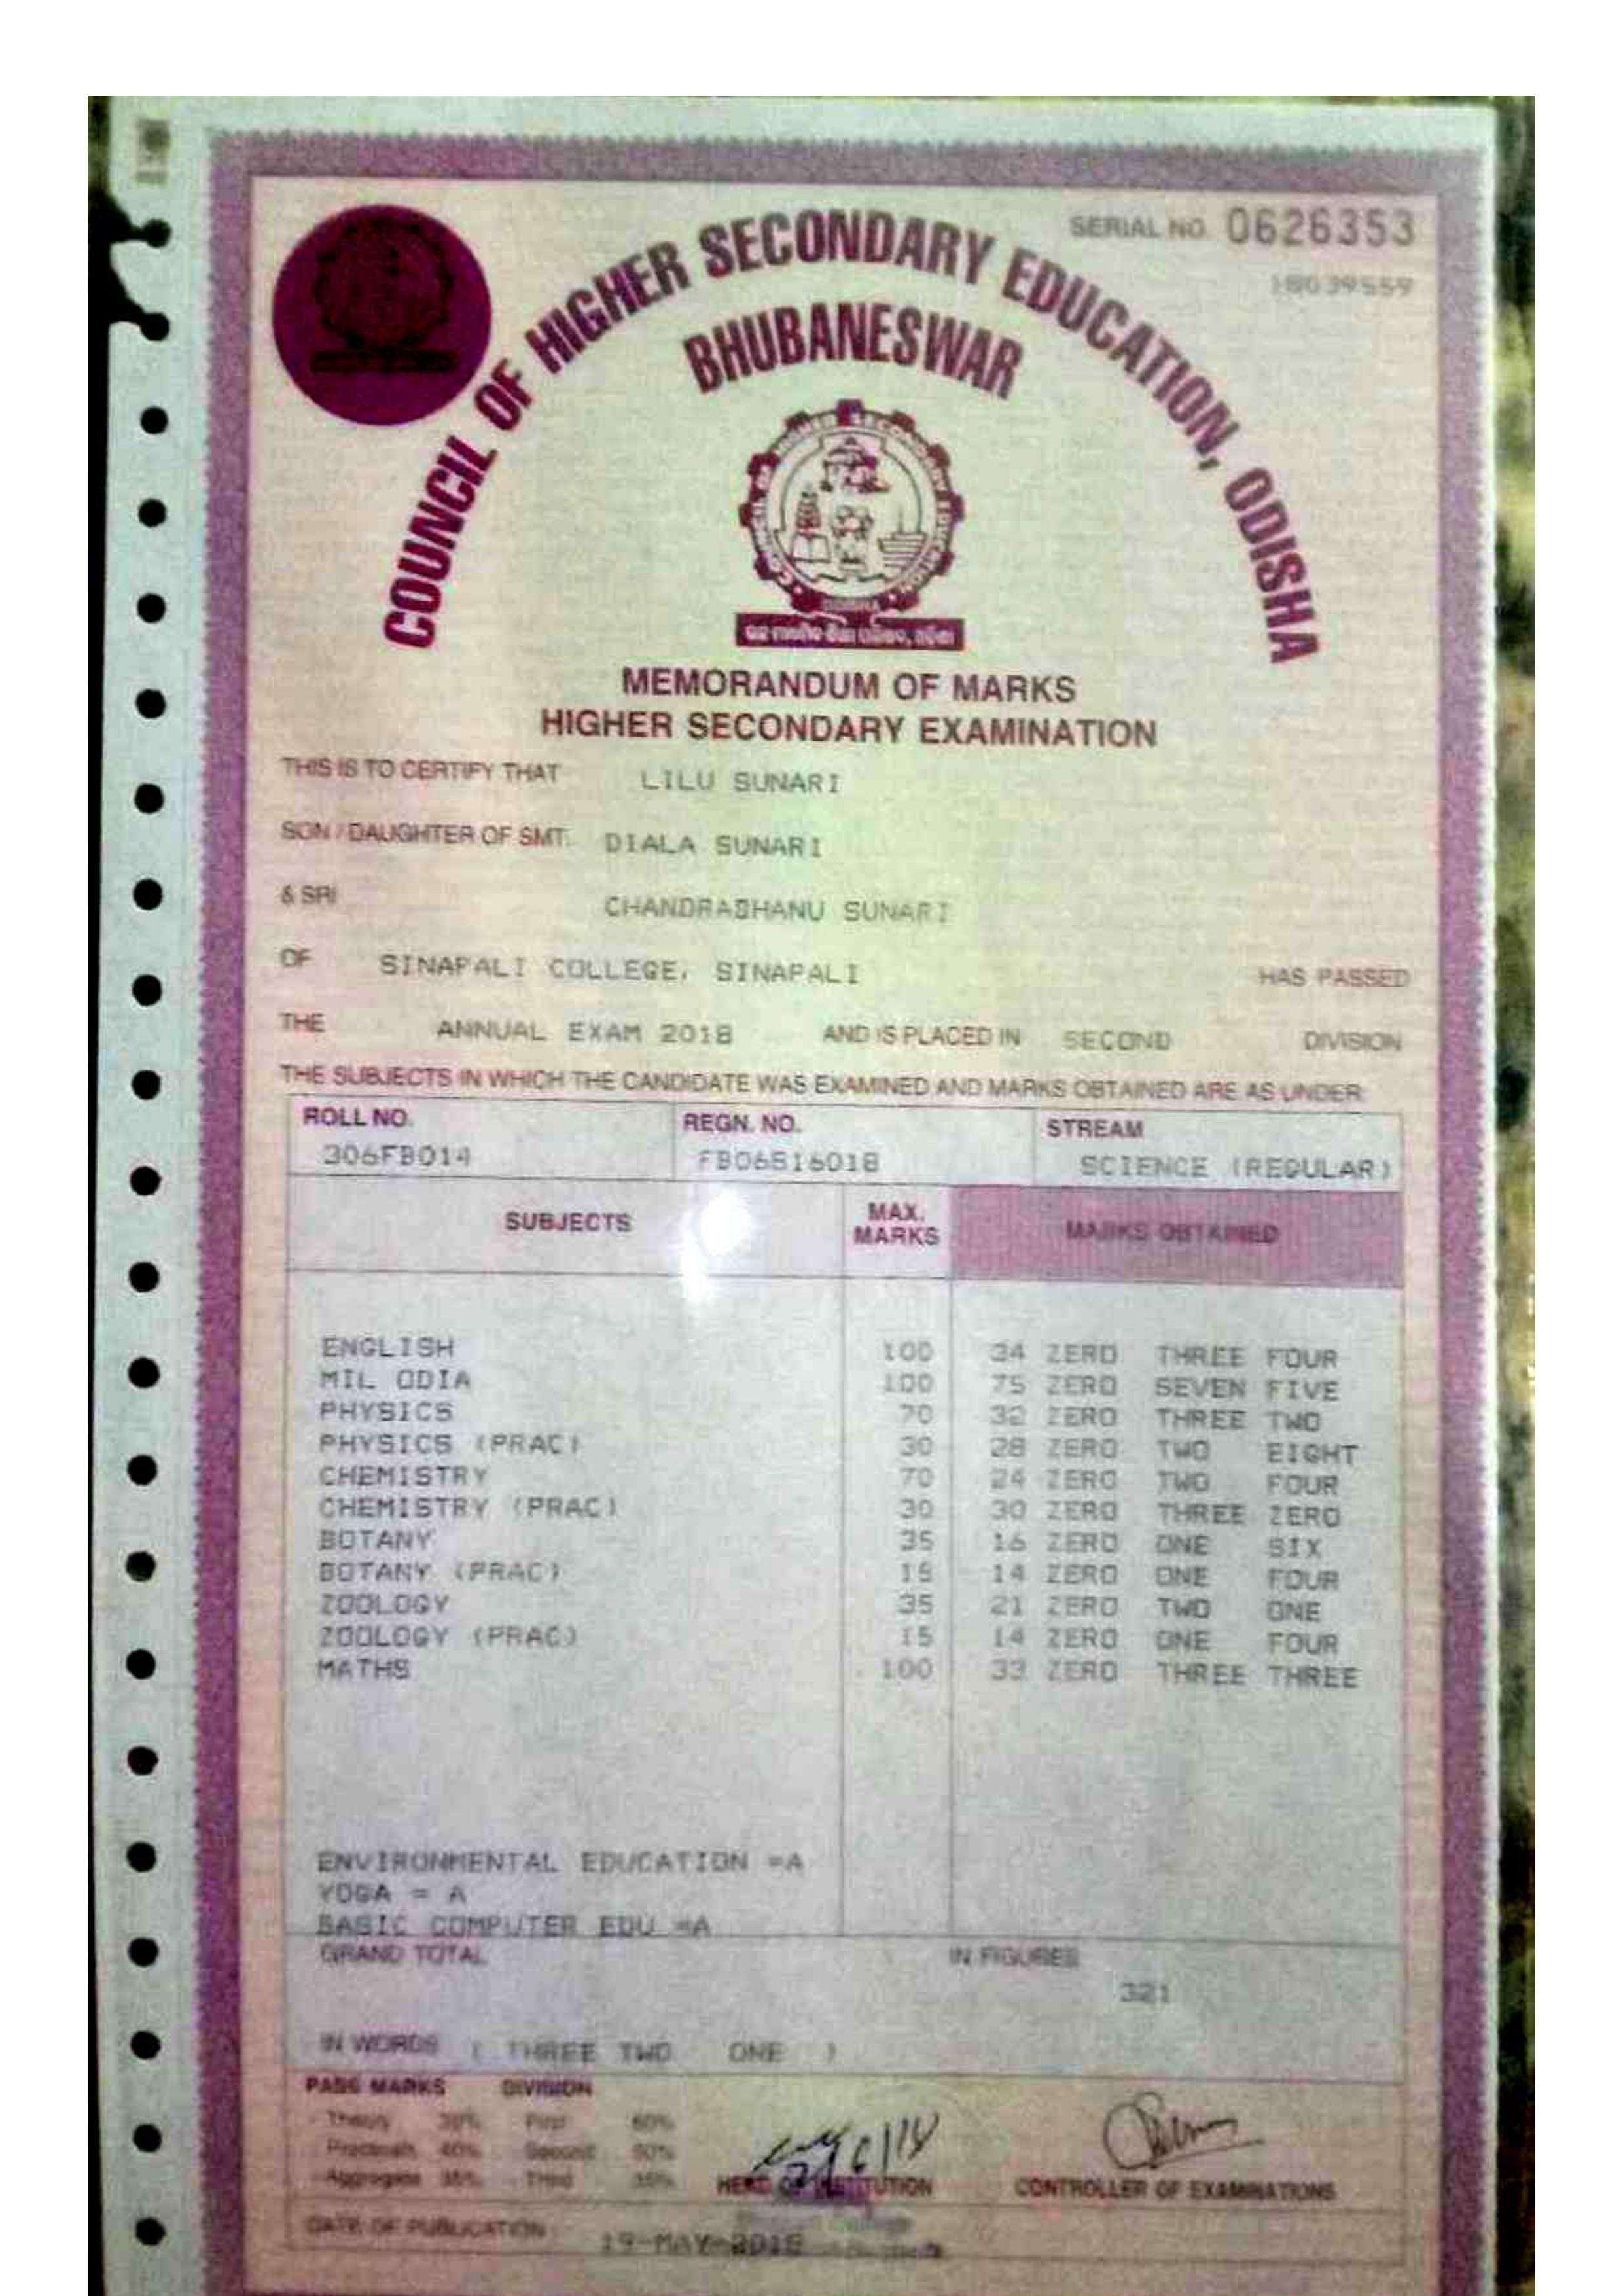 SERIAL NO. 0626353
18039559
COUNCIL OF HIGHER SECONDARY EDUCATION, ODISHA
BHUBANESWAR
MEMORANDUM OF MARKS
HIGHER SECONDARY EXAMINATION
THIS IS TO CERTIFY THAT LILU SUNARI
SON / DAUGHTER OF SMT. DIALA SUNARI
& SRI CHANDRABHANU SUNARI
OF SINAPALI COLLEGE, SINAPALI HAS PASSED
THE ANNUAL EXAM 2018 AND IS PLACED IN SECOND DIVISION
THE SUBJECTS IN WHICH THE CANDIDATE WAS EXAMINED AND MARKS OBTAINED ARE AS UNDER:
ROLL NO. REGN. NO. STREAM
306FB014 FB06S16018 SCIENCE (REGULAR)
SUBJECTS MAX. MARKS MARKS OBTAINED
ENGLISH 100 34 ZERO THREE FOUR
MIL ODIA 100 75 ZERO SEVEN FIVE
PHYSICS 70 32 ZERO THREE TWO
PHYSICS (PRAC) 30 28 ZERO TWO EIGHT
CHEMISTRY 70 24 ZERO TWO FOUR
CHEMISTRY (PRAC) 30 30 ZERO THREE ZERO
BOTANY 35 16 ZERO ONE SIX
BOTANY (PRAC) 15 14 ZERO ONE FOUR
ZOOLOGY 35 21 ZERO TWO ONE
ZOOLOGY (PRAC) 15 14 ZERO ONE FOUR
MATHS 100 33 ZERO THREE THREE
ENVIRONMENTAL EDUCATION =A
YOGA = A
BASIC COMPUTER EDU =A
GRAND TOTAL IN FIGURES
321
IN WORDS ( THREE TWO ONE )
PASS MARKS DIVISION
Theory 30% First 60%
Practicals 40% Second 50%
Aggregate 35% Third 35%
HEAD OF INSTITUTION CONTROLLER OF EXAMINATIONS
DATE OF PUBLICATION : 19-MAY-2018